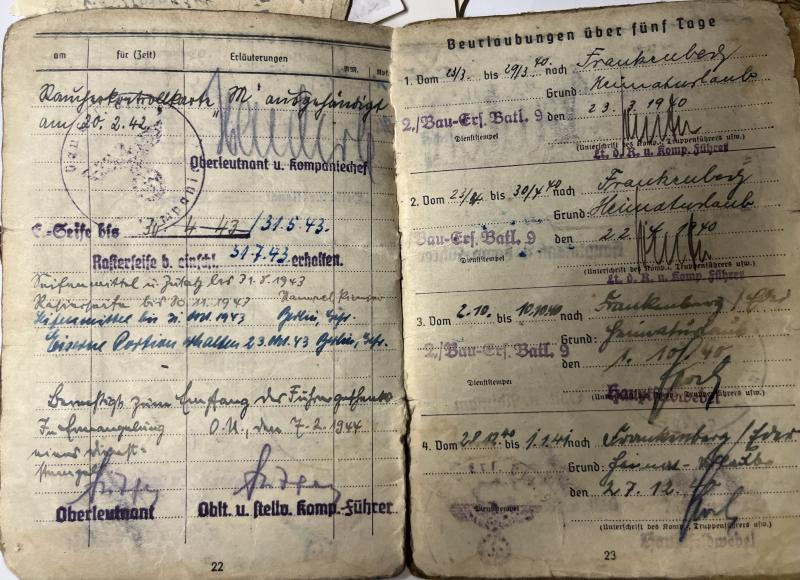 am für (Zeit) Erläuterungen
Raucherkontrollkarte "M" ausgehändigt
am 20. 2. 42.
Oberleutnant u. Kompaniechef
E.-Seife bis 30 4 43 / 31.5.43.
Rasierseife b. einschl. 31.7.43 erhalten.
Seifenmittel u. Zusatz bis 31.8.1943
Rasierseife bis 30.11.1943
bis 31. 1943
Eiserne Portion erhalten 23. 43
Berechtigt zum Empfang des Führergeschenks
In Ermangelung O.U., den 7.2.1944
eines Dienst-
stempels
Oberleutnant Oblt. u. stellv. Komp.-Führer
22
Beurlaubungen über fünf Tage
1. Vom 23/3. bis 29/3. 40. nach Frankenberg
Grund: Heimaturlaub
2./Bau-Ers. Batl. 9 den 23. 3. 1940
Dienststempel
(Unterschrift des Komp., Truppenführers usw.)
Lt. d. R. u. Komp. Führer
2. Vom 23/4. bis 30/4 40 nach Frankenberg
Grund: Heimaturlaub
Bau-Ers. Batl. 9 den 22. 4. 1940
Dienststempel
(Unterschrift des Komp., Truppenführers usw.)
Lt. d. R. u. Komp. Führer
3. Vom 2.10. bis 10.10.40 nach Frankenberg / Eder
Grund: Heimaturlaub
2./Bau-Ers. Batl. 9 den 1. 10. 40
Dienststempel
Hauptfeldwebel
(Unterschrift des Komp., Truppenführers usw.)
4. Vom 28 12 40 bis 1.1.41 nach Frankenberg / Eder
Grund: Heimat-Urlaub
den 27. 12. 40
Dienststempel
(Unterschrift des Komp., Truppenführers usw.)
Hauptfeldwebel
23